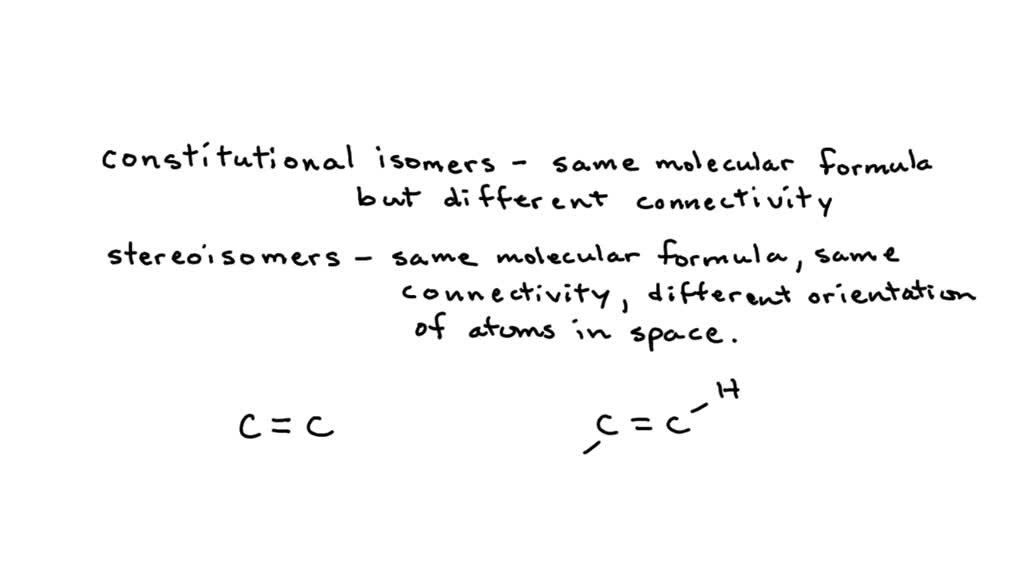 constitutional isomers - same molecular formula
but different connectivity
stereoisomers - same molecular formula, same
connectivity, different orientation
of atoms in space.
H
C = C
C = C